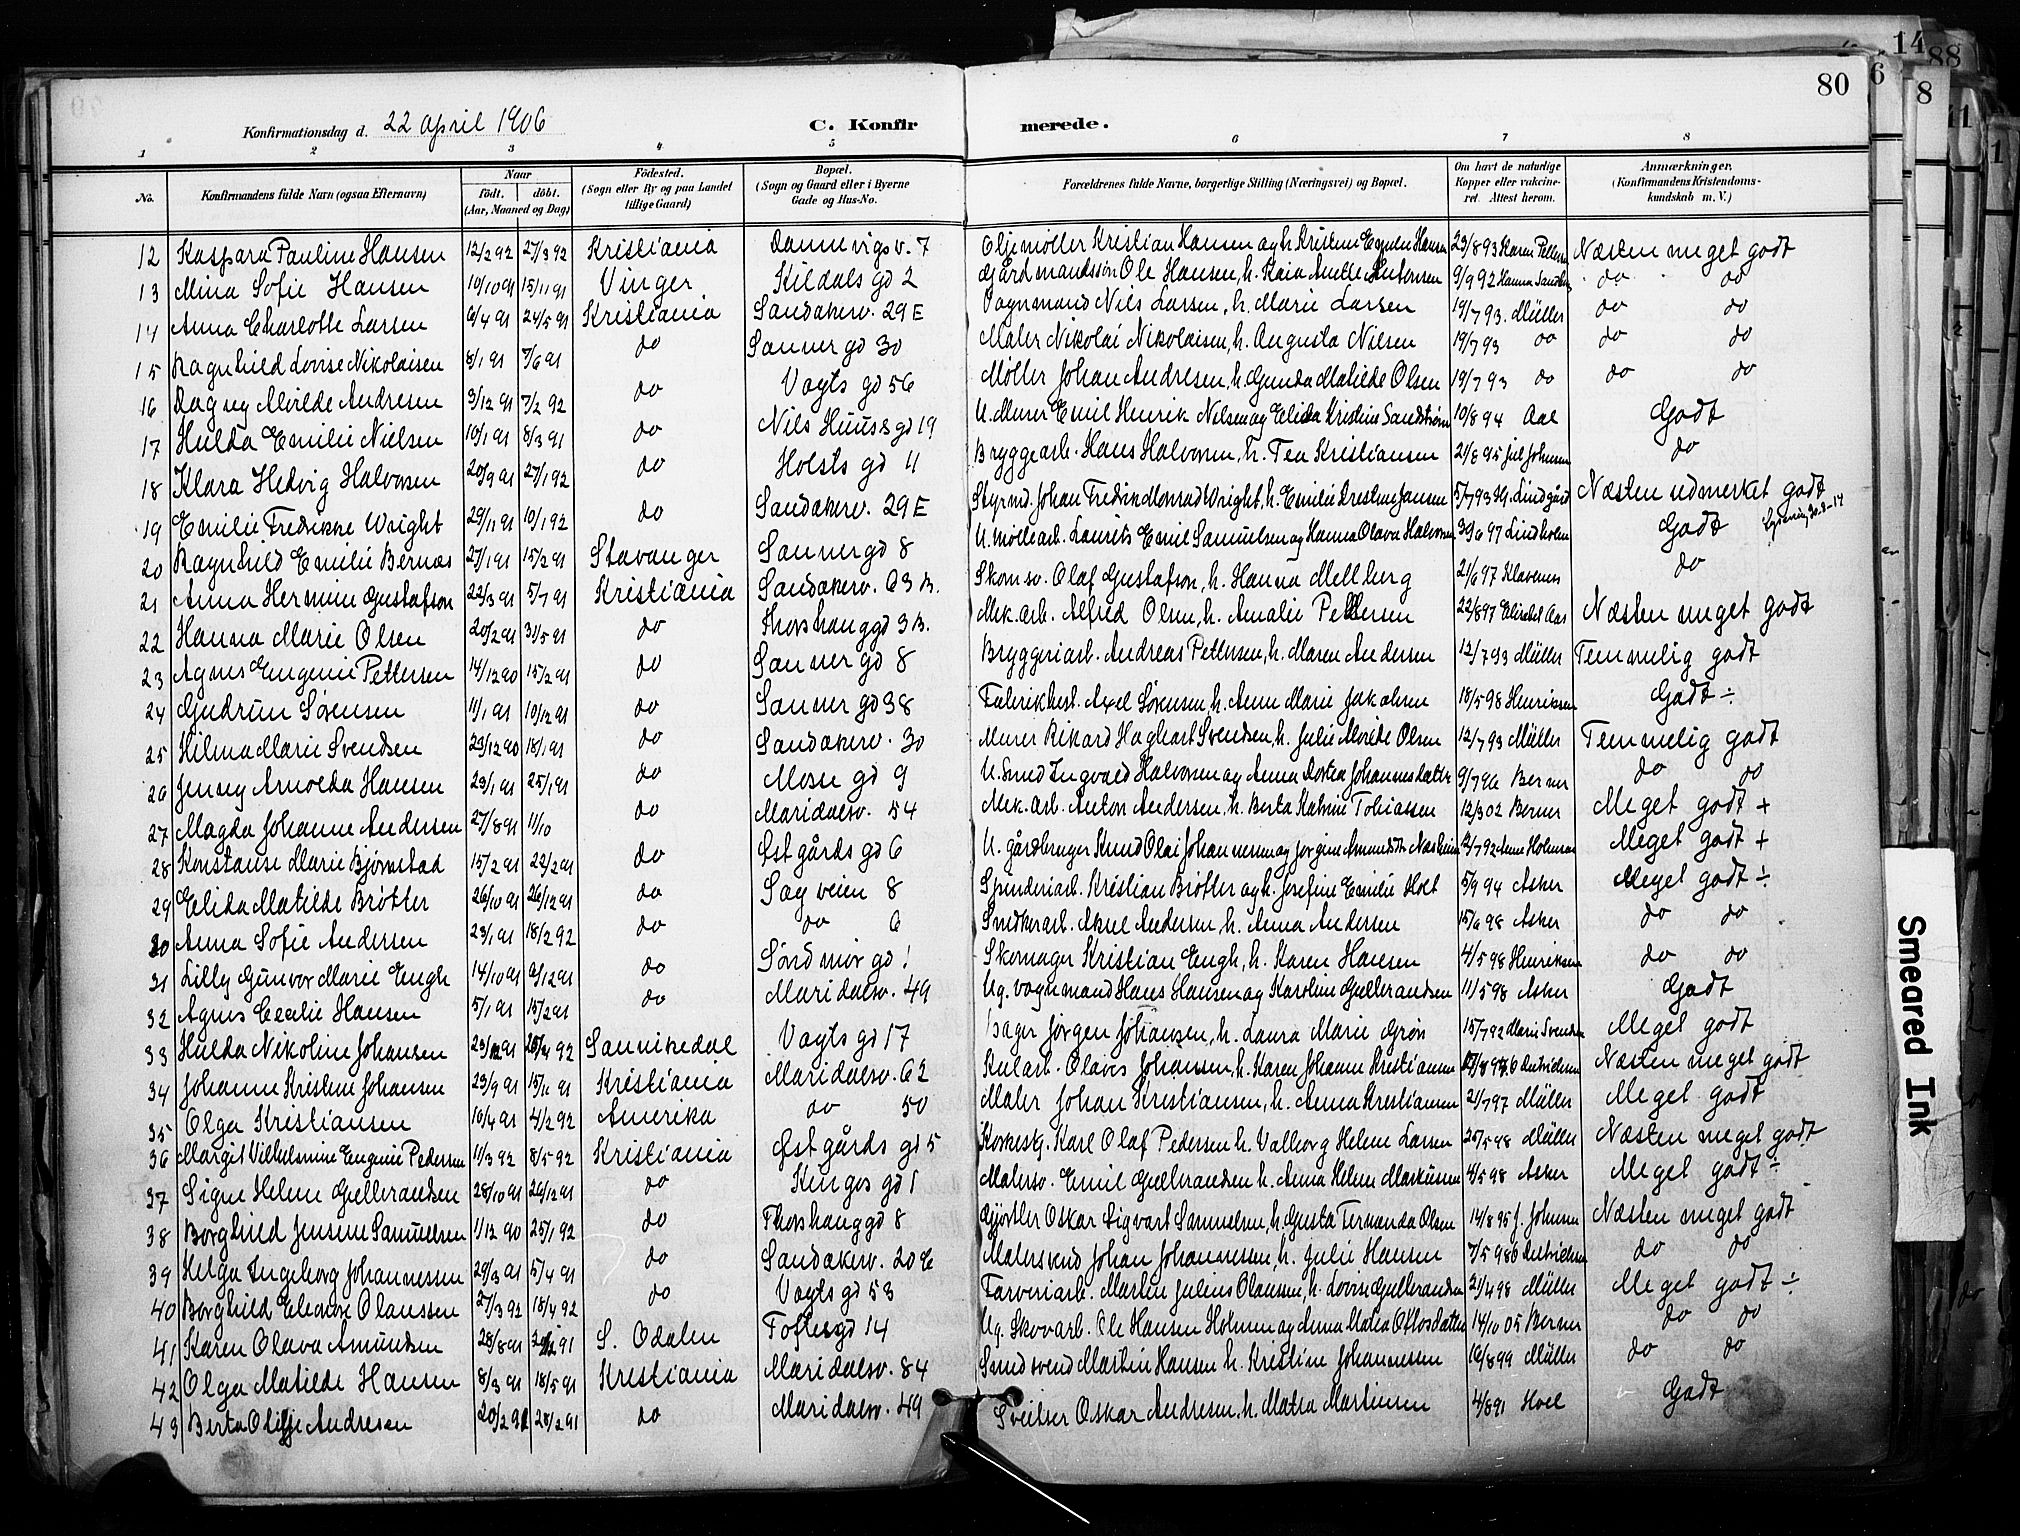 14 88
6 8
80 11
1
Konfirmationsdag d. 22 April 1906 C. Konfirmerede.
1 2 3 4 5 6 7 8
No. Konfirmandens fulde Navn (ogsaa Efternavn) Naar födt. döbt. (Aar, Maaned og Dag) Födested. (Sogn eller By og paa Landet tillige Gaard) Bopæl. (Sogn og Gaard eller i Byerne Gade og Hus-No. Forældrenes fulde Navne, borgerlige Stilling (Næringsvei) og Bopæl. Om havt de naturlige Kopper eller vakcineret. Attest herom. Anmærkninger. (Konfirmandens Kristendomskundskab m. V.)
12 Kaspara Pauline Hansen 12/2 92 27/3 92 Kristiania Dannevigsv. 7 Oljemøller Kristian Hansen og h. Kristine Emilie Hansen 23/8 93 Karen Næsten meget godt
13 Mina Sofie Hansen 10/10 91 15/11 91 Vinger Kildals gd 2 Gårdmandssøn Ole Hansen, h. Kaia Anette Antonsen 9/9 92 Hanna do do
14 Anna Charlotte Larsen 6/4 91 24/5 91 Kristiania Sandakerv. 29E Vognmand Nils Larsen, h. Marie Larsen 19/7 93. Müller do do
15 Ragnhild Lovise Nikolaisen 8/1 91 7/6 91 do Sanner gd 30 Maler Nikolai Nikolaisen, h. Augusta Nilsen 19/7 93 do do do
16 Dagny Alvilde Andresen 3/12 91 7/2 92 do Vogts gd 56 Møller Johan Andresen, h. Gunda Matilde Olsen 19/7 93 do do do
17 Hulda Emilie Nielsen 10/1 91 8/3 91 do Nils Huus gd 19 U. Murer Emil Henrik Nilsen og Elida Kristine Sandstrøm 10/8 94 Aal Godt
18 Klara Hedvig Halvorsen 20/9 91 27/1 92 do Holsts gd 11 Bryggearb. Hans Halvorsen, h. Tea Kristiansen 21/8 95 Jul Johnsen do
19 Emilie Fredrikke Wright 29/11 91 10/1 92 do Sandakerv. 29E Styrmd. Johan Fredrik Monrad Wright, h. Emilie Kristine Jansen 5/7 93 Lindgård Næsten udmerket godt
20 Ragnhild Emilie Bernas 27/1 91 15/2 91 Stavanger Sanner gd 8 U. møllearb. Laurits Emil Samuelsen og Hanna Olava Halvorsen 30/6 97 Lindholm Godt
21 Anna Hermine Gustafson 22/3 91 5/7 91 Kristiania Sandakerv. 63 B. Skomsv. Olaf Gustafson, h. Hanna Mellberg 21/6 97 Klavenes do
22 Hanna Marie Olsen 20/2 91 31/5 91 do Thorshauggd 3B. Mek. arb. Alfred Olsen, h. Amalie Pettersen 22/8 97 Elisabet Aas Næsten meget godt
23 Agnes Eugenie Pettersen 14/12 90 15/2 91 do Sanner gd 8 Bryggeriarb. Andreas Pettersen, h. Maren Andersen 12/7 93 Müller Temmelig godt
24 Gudrun Sørensen 11/1 91 10/12 91 do Sanner gd 38 Fabrikbest. Axel Sørensen, h. Anne Marie Jakobsen 18/5 98 Henriksen Godt ÷
25 Hilma Marie Svendsen 23/12 90 18/1 91 do Sandakerv. 30 Murer Rikard Hagbart Svendsen, h. Julie Alvilde Olsen 12/7 93 Müller Temmelig godt
26 Jenny Arnolda Hansen 23/1 91 25/1 91 do Mosse gd 9 U. Smed Ingvald Halvorsen og Anna Dortea Johannesdatter 9/7 96 Berner do do
27 Magda Johanne Andersen 27/8 91 11/10 do Maridalsv. 54 Mek. arb. Anton Andersen, h. Berta Katrine Tobiassen 12/3 02 Berner Meget godt +
28 Konstanse Marie Bjørnstad 15/2 91 22/2 91 do Østgårds gd 6 U. gårdbruger Knud Olai Johannesen og Jorgine 2/7 92 Anne Holmsen Meget godt +
29 Elida Matilde Brøtter 26/10 91 26/12 91 do Sagveien 8 Spinderiarb. Kristian Brøtter og h. Josefine Emilie Holt 5/9 94 Asker Meget godt ÷
30 Anna Sofie Andersen 23/1 91 18/2 92 do do 6 Snedkerarb. Aksel Andersen, h. Anna Andersen 15/6 98 Asker do do
31 Lilly Gunvor Marie Engh 14/10 91 9/12 91 do Søndmør gd 1 Skomager Kristian Engh, h. Karen Hansen 4/5 98 Henriksen do do
32 Agnes Cecilie Hansen 5/1 91 15/2 91 do Maridalsv. 49 Ug. vognmand Hans Hansen og Karoline Gulbrandsen 11/5 98 Asker Godt
33 Hulda Nikoline Johansen 23/12 91 92 Sannikedal Vogts gd 17 Bager Jørgen Johansen, h. Laura Marie Grøn 15/7 92 Marie Svendsen Meget godt
34 Johanne Kristine Johansen 23/9 91 15/11 91 Kristiania Maridalsv. 62 Kularb. Olaves Johansen, h. Karen Johanne Kristianne Næsten meget godt
35 Olga Kristiansen 10/4 91 4/2 92 Amerika do 50 Maler Johan Kristiansen, h. Anna Kristiansen 21/7 97 Müller Meget godt
36 Margit Vilhelmine Eugenie Pedersen 11/3 92 8/5 92 Kristiania Østgårds gd 5 Karl Olaf Pedersen h. Valborg Helene Larsen 25/5 98 Müller Næsten meget godt
37 Signe Helene Gulbrandsen 28/10 91 26/12 91 do Kingos gd 1 Malersv. Emil Gulbrandsen h. Anna Helene Markussen 4/5 98 Asker Meget godt ÷
38 Borghild Jensine Samuelsen 1/12 90 25/1 92 do Thorshauggd 8 Gjørtler Oskar Sigvart Samuelsen, h. Gusta Fernanda Olsen 14/8 95 J. Johnsen Næsten meget godt
39 Helga Ingeborg Johannessen 29/3 91 5/4 91 do Sandakerv. 20 Malersvend Johan Johannessen, h. Julie Hansen 7/5 98 do do
40 Borghild Eleonore Olaussen 27/3 92 18/4 92 do Vogts gd 53 Farveriarb. Martin Julius Olaussen, h. Lovise Gulbrandsen 21/4 98 Müller Meget godt ÷
41 Karen Olava Amundsen 28/8 91 91 S. Odalen Toftesgd 14 Ug. Skovarb. Ole Hansen Holmen og Anna Matea Ottosdatter 14/10 05 Berner do do
42 Olga Matilde Hansen 8/3 91 18/5 91 Kristiania Maridalsv. 84 Smedsvend Martin Hansen h. Kristine Johannessen 16/8 99 Müller do do
43 Berta Andresen 20/2 91 28/2 91 do Maridalsv. 49 Sveitser Oskar Andresen, h. Matea Martinsen 4/8 91 Hoel Godt
Smeared Ink